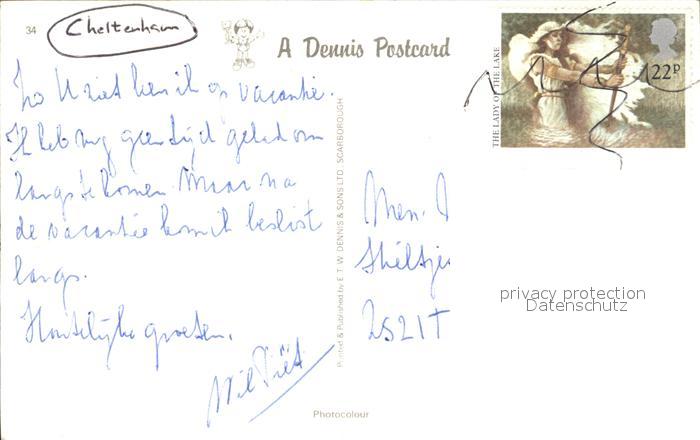 34
Cheltenham
A Dennis Postcard
THE LADY OF THE LAKE
22P
Zo U ziet ben ik op vacantie.
Ik heb nog geen tijd gehad om
langs te komen. Maar na
de vacantie kom ik beslist
langs.
Hartelijke groeten.
Wil
Printed & Published by E. T. W. DENNIS & SONS LTD., SCARBOROUGH
Photocolour
Men.
2521T
privacy protection
Datenschutz